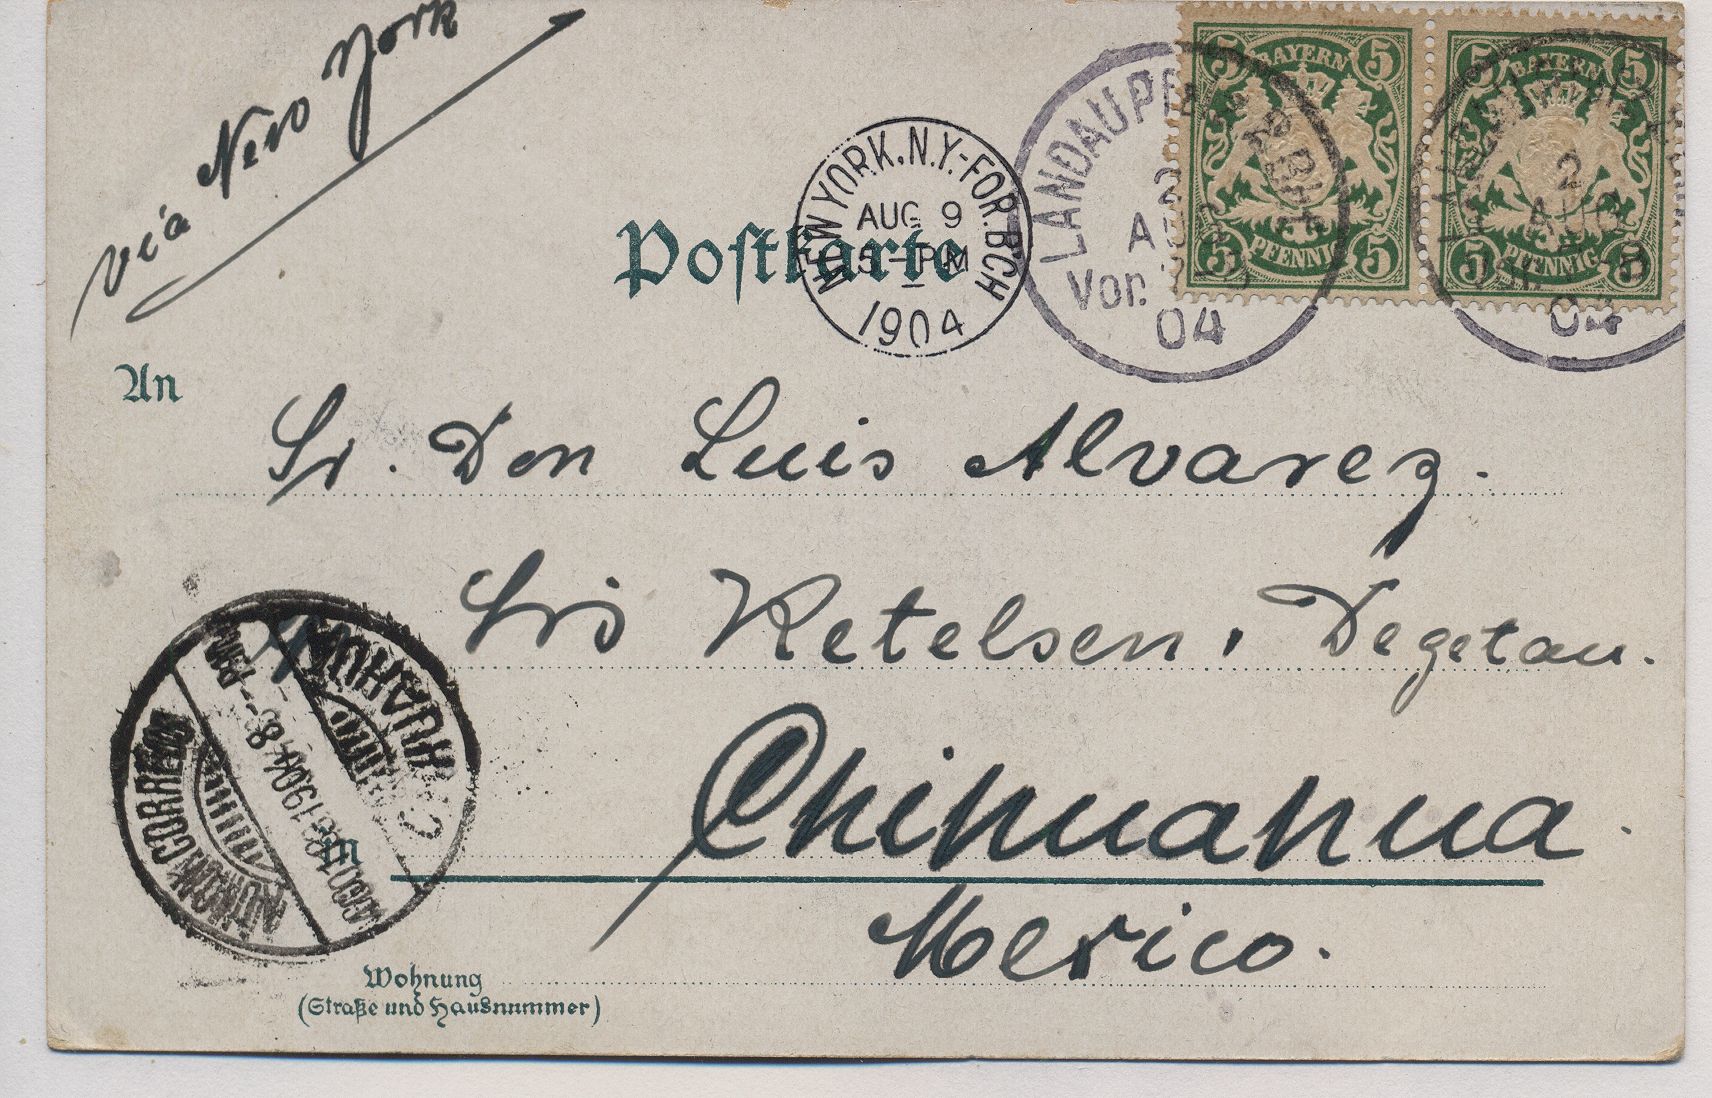 via New York
NEW YORK, N.Y.-FOR. B'CH
AUG 9
5 - PM
1904
LANDAU PFALZ BHF
2
AUG
Vor. 7-8
04
BAYERN
5 5
5 PFENNIG 5
BAYERN
5 5
5 PFENNIG 5
2
AUG
04
Postkarte
An
Sr. Don Luis Alvarez.
Sris Ketelsen, Degetau.
Chihuahua
Mexico.
in
CHIHUAHUA
CORREOS
Wohnung
(Straße und Hausnummer)